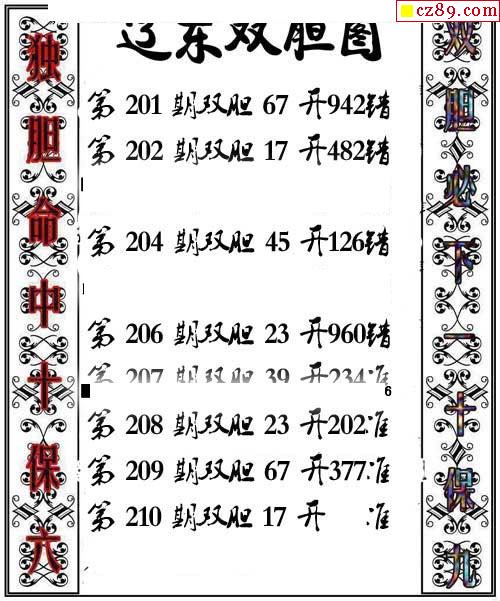 cz89.com
辽东双胆图
第 201 期双胆 67 开942错
第 202 期双胆 17 开482错
第 204 期双胆 45 开126错
第 206 期双胆 23 开960错
第 207 期双胆 39 开234准
6
第 208 期双胆 23 开202准
第 209 期双胆 67 开377准
第 210 期双胆 17 开 准
独胆命中十保六
双胆必下一十保九